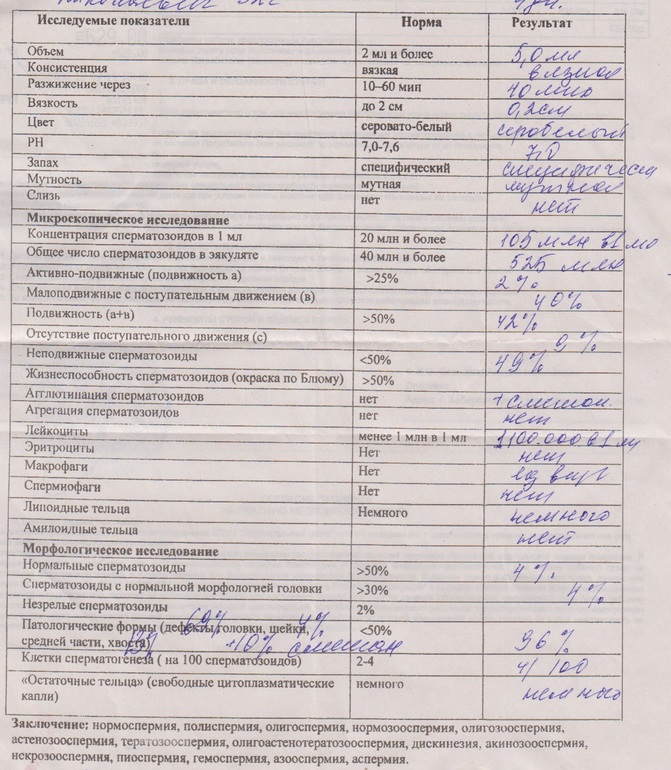 Исследуемые показатели Норма Результат
Объем 2 мл и более 5,0 мл
Консистенция вязкая вязкая
Разжижение через 10–60 мин 40 мин
Вязкость до 2 см 0,2см
Цвет серовато-белый серобелый
PH 7,0-7,6 7,0
Запах специфический специфический
Мутность мутная мутная
Слизь нет нет
Микроскопическое исследование
Концентрация сперматозоидов в 1 мл 20 млн и более 105 млн в1 мл
Общее число сперматозоидов в эякуляте 40 млн и более 525 млн
Активно-подвижные (подвижность а) >25% 2%
Малоподвижные с поступательным движением (в) 40%
Подвижность (а+в) >50% 42%
Отсутствие поступательного движения (с) 9%
Неподвижные сперматозоиды <50% 49%
Жизнеспособность сперматозоидов (окраска по Блюму) >50%
Агглютинация сперматозоидов нет + смешан.
Агрегация сперматозоидов нет нет
Лейкоциты менее 1 млн в 1 мл 1100.000 в1 мл
Эритроциты Нет нет
Макрофаги Нет ед
Спермиофаги Нет нет
Липоидные тельца Немного немного
Амилоидные тельца нет
Морфологическое исследование
Нормальные сперматозоиды >50% 4%
Сперматозоиды с нормальной морфологией головки >30% 4%
Незрелые сперматозоиды 2%
69% 4%
Патологические формы (дефекты головки, шейки, <50% 96%
средней части, хвоста) 13% +10% смешан
Клетки сперматогенеза ( на 100 сперматозоидов) 2-4 4/100
«Остаточные тельца» (свободные цитоплазматические немного немного
капли)
Заключение; нормоспермия, полиспермия, олигоспермия, нормозооспермия, олигозооспермия,
астенозооспермия, тератозооспермия, олигоастенотератозооспермия, дискинезия, акинозооспермия,
некрозооспермия, пиоспермия, гемоспермия, азооспермия, аспермия.